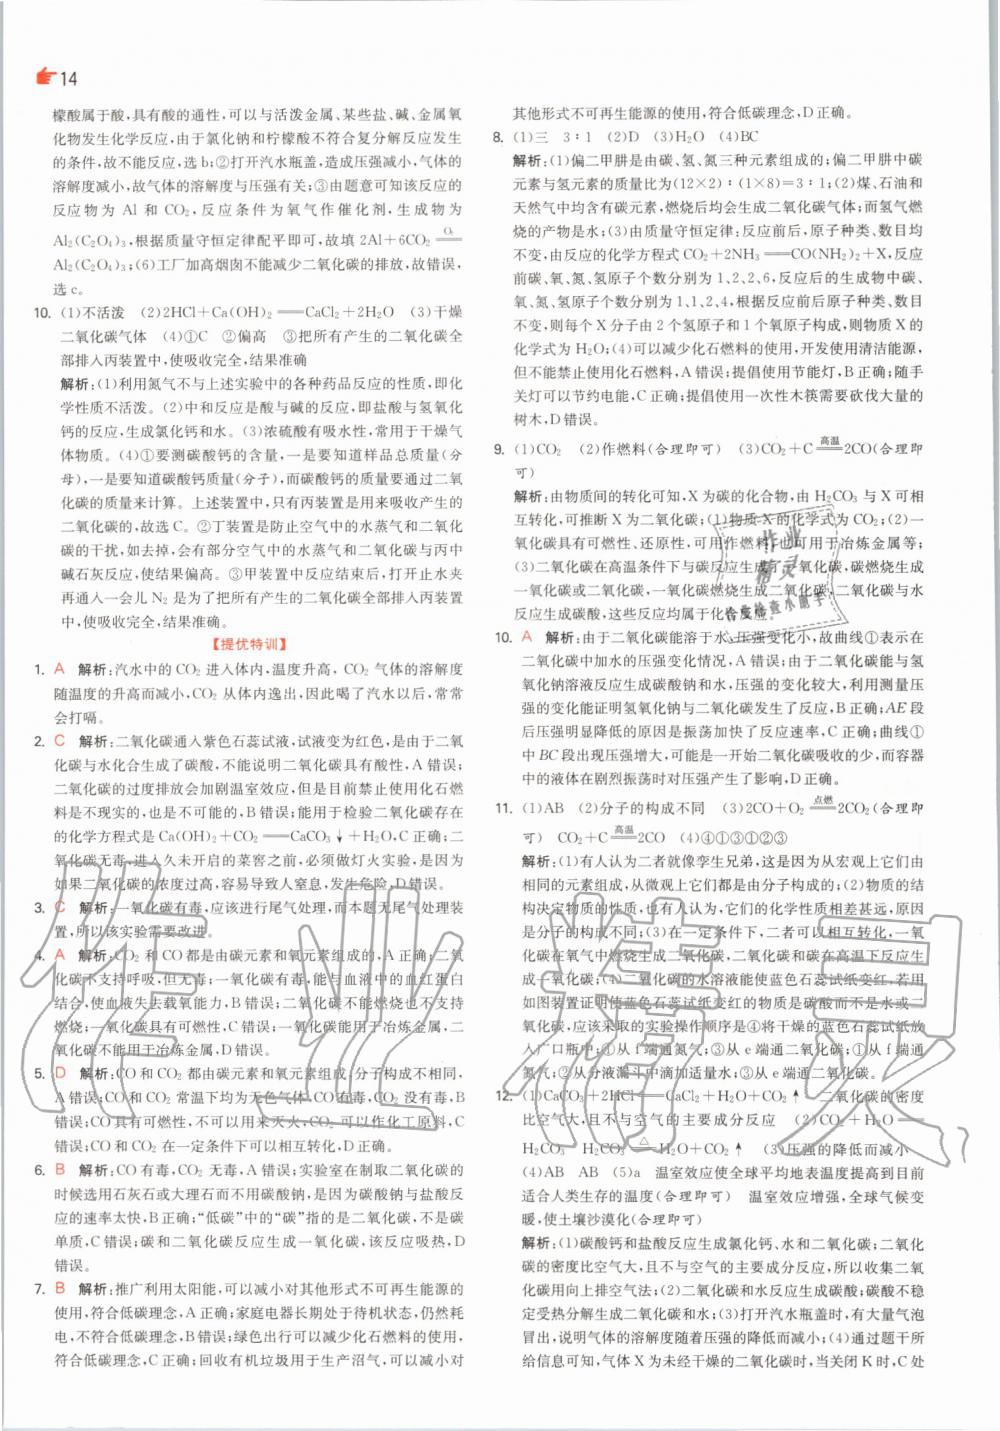 14
檬酸属于酸,具有酸的通性,可以与活泼金属、某些盐、碱、金属氧
化物发生化学反应,由于氯化钠和柠檬酸不符合复分解反应发生
的条件,故不能反应,选b;②打开汽水瓶盖,造成压强减小,气体的
溶解度减小,故气体的溶解度与压强有关;③由题意可知该反应的
反应物为 Al 和 CO₂,反应条件为氧气作催化剂,生成物为
Al₂(C₂O₄)₃,根据质量守恒定律配平即可,故填 2Al+6CO₂ ══(O₂)
Al₂(C₂O₄)₃;(6)工厂加高烟囱不能减少二氧化碳的排放,故错误,
选c。
10. (1)不活泼 (2)2HCl+Ca(OH)₂══CaCl₂+2H₂O (3)干燥
二氧化碳气体 (4)①C ②偏高 ③把所有产生的二氧化碳全
部排入丙装置中,使吸收完全,结果准确
解析:(1)利用氮气不与上述实验中的各种药品反应的性质,即化
学性质不活泼。(2)中和反应是酸与碱的反应,即盐酸与氢氧化
钙的反应,生成氯化钙和水。(3)浓硫酸有吸水性,常用于干燥气
体物质。(4)①要测碳酸钙的含量,一是要知道样品总质量(分
母),一是要知道碳酸钙质量(分子),而碳酸钙的质量要通过二氧
化碳的质量来计算。上述装置中,只有丙装置是用来吸收产生的
二氧化碳的,故选C。②丁装置是防止空气中的水蒸气和二氧化
碳的干扰,如去掉,会有部分空气中的水蒸气和二氧化碳与丙中
碱石灰反应,使结果偏高。③甲装置中反应结束后,打开止水夹
再通入一会儿N₂是为了把所有产生的二氧化碳全部排入丙装置
中,使吸收完全,结果准确。
【提优特训】
1. A 解析:汽水中的 CO₂ 进入体内,温度升高,CO₂ 气体的溶解度
随温度的升高而减小,CO₂ 从体内逸出,因此喝了汽水以后,常常
会打嗝。
2. C 解析:二氧化碳通入紫色石蕊试液,试液变为红色,是由于二氧
化碳与水化合生成了碳酸,不能说明二氧化碳具有酸性,A错误;
二氧化碳的过度排放会加剧温室效应,但是目前禁止使用化石燃
料是不现实的,也是不可能的,B错误;能用于检验二氧化碳存在
的化学方程式是 Ca(OH)₂+CO₂══CaCO₃↓+H₂O,C正确;二
氧化碳无毒,进入久未开启的菜窖之前,必须做灯火实验,是因为
如果二氧化碳的浓度过高,容易导致人窒息,发生危险,D错误。
3. C 解析:一氧化碳有毒,应该进行尾气处理,而本题无尾气处理装
置,所以该实验需要改进。
4. A 解析:CO₂和CO都是由碳元素和氧元素组成的,A正确;二氧
化碳不支持呼吸,但无毒;一氧化碳有毒,能与血液中的血红蛋白
结合,使血液失去载氧能力,B错误;二氧化碳不能燃烧也不支持
燃烧;一氧化碳具有可燃性,C错误;一氧化碳能用于冶炼金属,二
氧化碳不能用于冶炼金属,D错误。
5. D 解析:CO和CO₂都由碳元素和氧元素组成,分子构成不相同,
A错误;CO和CO₂常温下均为无色气体,CO有毒,CO₂没有毒,B
错误;CO具有可燃性,不可以用来灭火,CO₂可以作化工原料,C
错误;CO和CO₂在一定条件下可以相互转化,D正确。
6. B 解析:CO有毒,CO₂无毒,A错误;实验室在制取二氧化碳的
时候选用石灰石或大理石而不用碳酸钠,是因为碳酸钠与盐酸反
应的速率太快,B正确;“低碳”中的“碳”指的是二氧化碳,不是碳
单质,C错误;碳和二氧化碳反应生成一氧化碳,该反应吸热,D
错误。
7. B 解析:推广利用太阳能,可以减小对其他形式不可再生能源的
使用,符合低碳理念,A正确;家庭电器长期处于待机状态,仍然耗
电,不符合低碳理念,B错误;绿色出行可以减少化石燃料的使用,
符合低碳理念,C正确;回收有机垃圾用于生产沼气,可以减小对
其他形式不可再生能源的使用,符合低碳理念,D正确。
8. (1)三 3∶1 (2)D (3)H₂O (4)BC
解析:(1)偏二甲肼是由碳、氢、氮三种元素组成的;偏二甲肼中碳
元素与氢元素的质量比为(12×2)∶(1×8)=3∶1;(2)煤、石油和
天然气中均含有碳元素,燃烧后均会生成二氧化碳气体;而氢气燃
烧的产物是水;(3)由质量守恒定律:反应前后,原子种类、数目均
不变,由反应的化学方程式 CO₂+2NH₃══CO(NH₂)₂+X,反应
前碳、氧、氮、氢原子个数分别为1、2、2、6,反应后的生成物中碳、
氧、氮、氢原子个数分别为1、1、2、4,根据反应前后原子种类、数目
不变,则每个X分子由2个氢原子和1个氧原子构成,则物质X的
化学式为H₂O;(4)可以减少化石燃料的使用,开发使用清洁能源,
但不能禁止使用化石燃料,A错误;提倡使用节能灯,B正确;随手
关灯可以节约电能,C正确;提倡使用一次性木筷需要砍伐大量的
树木,D错误。
9. (1)CO₂ (2)作燃料(合理即可) (3)CO₂+C══(高温)2CO(合理即
可)
解析:由物质间的转化可知,X为碳的化合物,由H₂CO₃与X可相
互转化,可推断X为二氧化碳;(1)物质X的化学式为CO₂;(2)一
氧化碳具有可燃性、还原性,可用作燃料,也可用于冶炼金属等;
(3)二氧化碳在高温条件下与碳反应生成了一氧化碳,碳燃烧生成
一氧化碳或二氧化碳,一氧化碳燃烧生成二氧化碳,二氧化碳与水
反应生成碳酸,这些反应均属于化合反应。
10. A 解析:由于二氧化碳能溶于水,压强变化小,故曲线①表示在
二氧化碳中加水的压强变化情况,A错误;由于二氧化碳能与氢
氧化钠溶液反应生成碳酸钠和水,压强的变化较大,利用测量压
强的变化能证明氢氧化钠与二氧化碳发生了反应,B正确;AE段
后压强明显降低的原因是振荡加快了反应速率,C正确;曲线①
中BC段出现压强增大,可能是一开始二氧化碳吸收的少,而容器
中的液体在剧烈振荡时对压强产生了影响,D正确。
11. (1)AB (2)分子的构成不同 (3)2CO+O₂══(点燃)2CO₂(合理即
可) CO₂+C══(高温)2CO (4)④①③①②③
解析:(1)有人认为二者就像孪生兄弟,这是因为从宏观上它们由
相同的元素组成,从微观上它们都是由分子构成的;(2)物质的结
构决定物质的性质,也有人认为,它们的化学性质相差甚远,原因
是分子的构成不同;(3)在一定条件下,二者可以相互转化,一氧
化碳在氧气中燃烧生成二氧化碳,二氧化碳和碳在高温下反应生
成一氧化碳;(4)二氧化碳的水溶液能使蓝色石蕊试纸变红,若用
如图装置证明使蓝色石蕊试纸变红的物质是碳酸而不是水或二
氧化碳,应该采取的实验操作顺序是④将干燥的蓝色石蕊试纸放
入广口瓶中;①从f端通氮气;③从e端通二氧化碳;①从f端通
氮气;②从分液漏斗中滴加适量水;③从e端通二氧化碳。
12. (1)CaCO₃+2HCl══CaCl₂+H₂O+CO₂↑ 二氧化碳的密度
比空气大,且不与空气的主要成分反应 (2)CO₂+H₂O══
H₂CO₃ H₂CO₃══(△)H₂O+CO₂↑ (3)压强的降低而减小
(4)AB AB (5)a 温室效应使全球平均地表温度提高到目前
适合人类生存的温度(合理即可) 温室效应增强,全球气候变
暖,使土壤沙漠化(合理即可)
解析:(1)碳酸钙和盐酸反应生成氯化钙、水和二氧化碳;二氧化
碳的密度比空气大,且不与空气的主要成分反应,所以收集二氧
化碳用向上排空气法;(2)二氧化碳和水反应生成碳酸;碳酸不稳
定受热分解生成二氧化碳和水;(3)打开汽水瓶盖时,有大量气泡
冒出,说明气体的溶解度随着压强的降低而减小;(4)通过题干所
给信息可知,气体X为未经干燥的二氧化碳时,当关闭K时,C处
作业
精灵
作业检查小助手
作业精灵